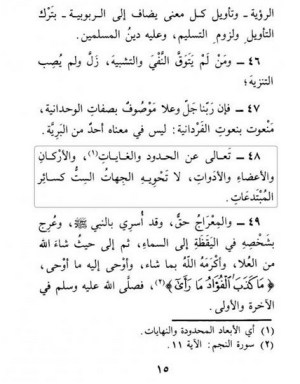 الرؤية ـ وتأويل كل معنى يضاف إلى الربوبية ـ بِتَرْك
التأويل ولزوم التسليم، وعليه دينُ المسلمين.
٤٦ ـ ومَنْ لَمْ يَتَوَقَّ النَّفْيَ والتشبيهَ، زَلَّ ولم يُصِب
التنزيهَ؛
٤٧ ـ فإن رَبَّنا جَلَّ وعلا مَوْصُوفٌ بصفاتِ الوحدانية،
مَنْعوت بنعوتِ الفَرْدانية: ليس في معناه أحدٌ من البَرِيَّة.
٤٨ ـ تَعالى عن الحدود والغايات(١)، والأركانِ
والأعضاءِ والأدواتِ، لا تَحْويهِ الجِهاتُ السِتُّ كسائرِ
المُبْتَدَعاتِ.
٤٩ ـ والمِعْرَاجُ حقٌّ، وقد أُسرِي بالنبي ﷺ، وعُرِج
بشَخْصِهِ في اليَقَظَةِ إلى السماءِ، ثم إلى حيثُ شاءَ الله
من العُلا، وأكْرَمَهُ اللَّهُ بما شاء، وأوْحى إليه ما أوْحى،
﴿ مَا كَذَبَ ٱلْفُؤَادُ مَا رَأَىٰٓ ﴾(٢)، فصلَّى الله عليه وسلم في
الآخرة والأولى.
(١) أي الأبعاد المحدودة والنهايات.
(٢) سورة النجم: الآية ١١.
١٥